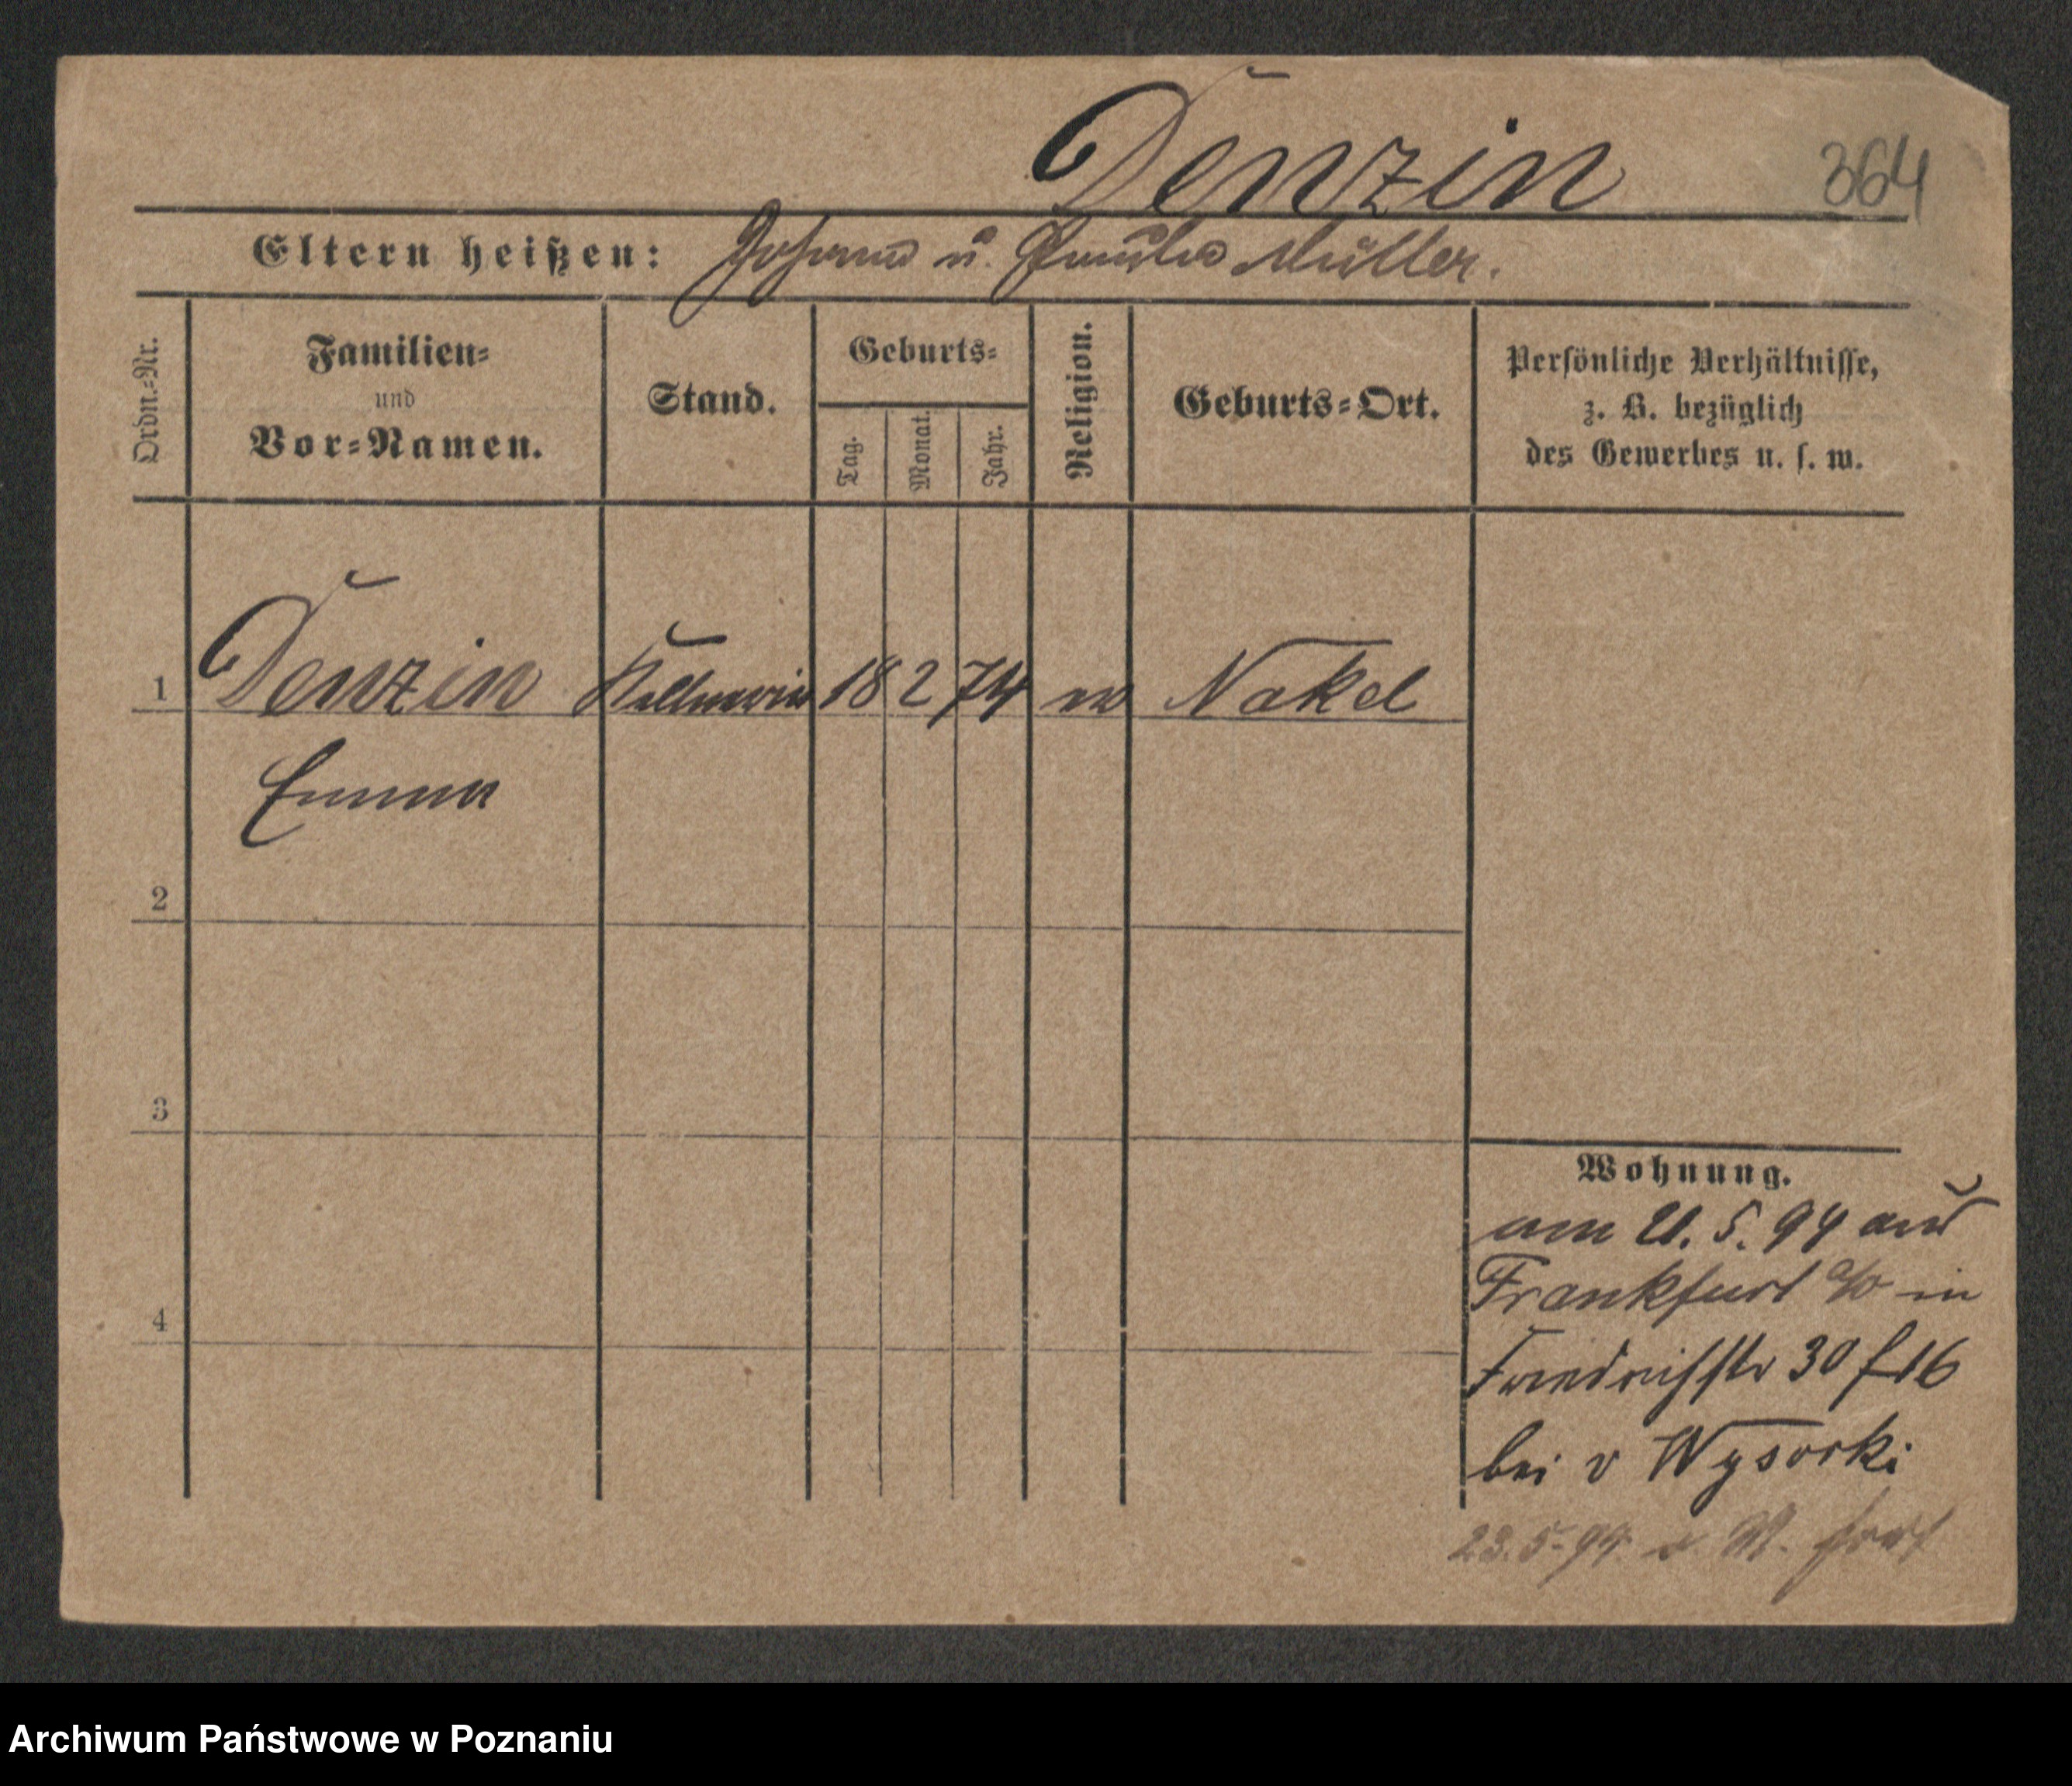 Denzin
364
Eltern heißen: Johann u. Paula Müller.
Ordn.-Nr.
Familien-
und
Vor-Namen.
Stand.
Geburts-
Tag.
Monat.
Jahr.
Religion.
Geburts-Ort.
Persönliche Verhältnisse,
z. B. bezüglich
des Gewerbes u. s. w.
1 Denzin Kellnerin 18 2 74 ev Nakel
Emma
2
3
4
Wohnung.
am 21. 5. 94 aus
Frankfurt a/O in
Friedrichstr 30 f 16
bei v Wysocki
23. 5. 94 fort
Archiwum Państwowe w Poznaniu